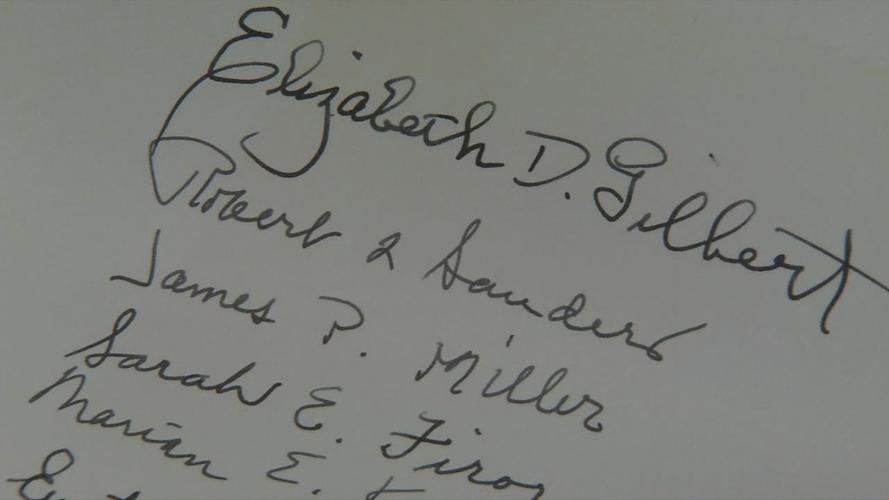 Elizabeth D. Gilbert
Robert L Sanders
James P. Miller
Sarah E.
Marian E.